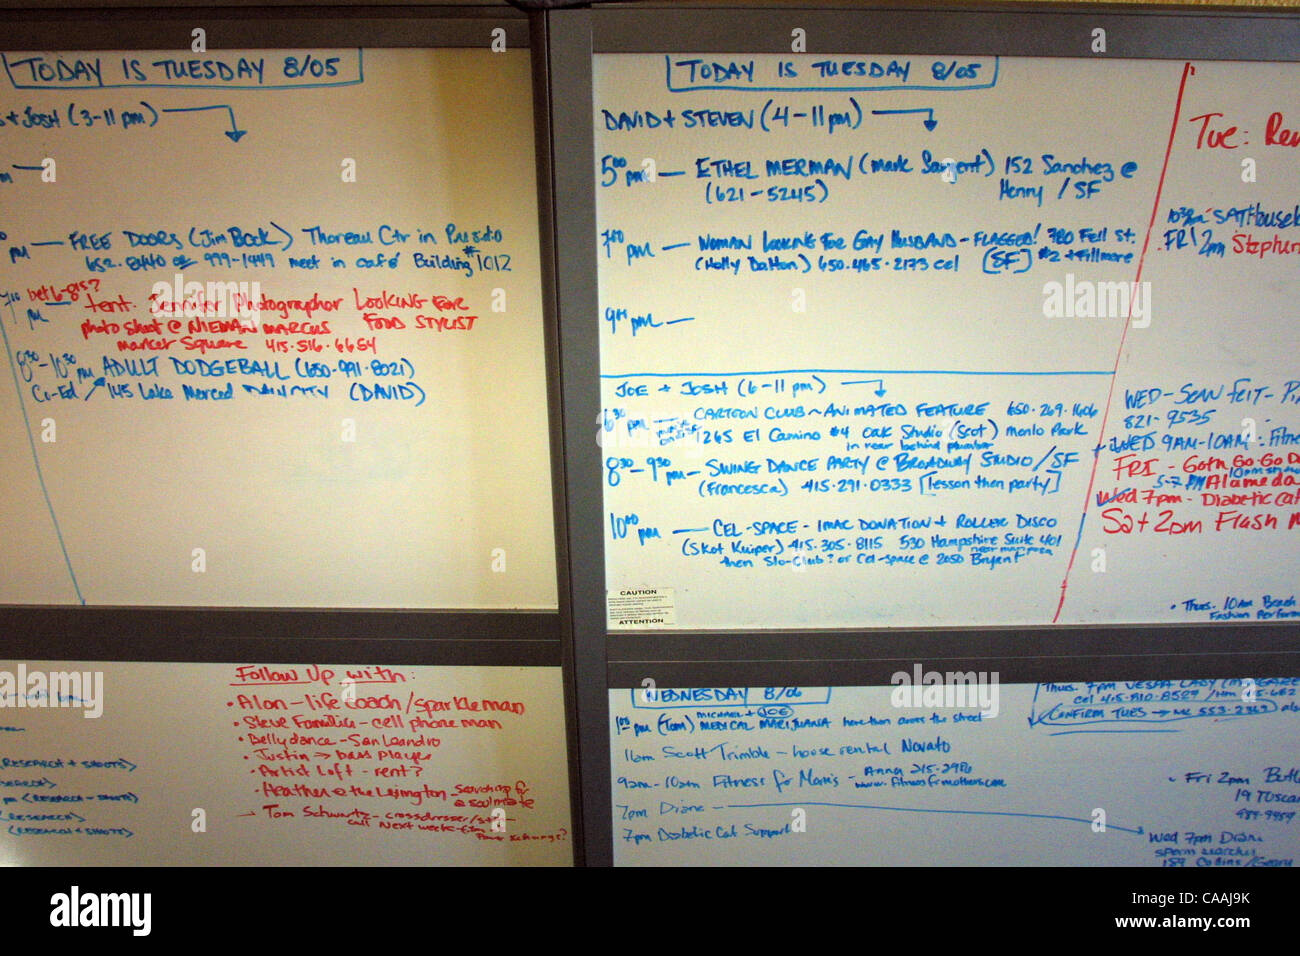 TODAY IS TUESDAY 8/05
+ JOSH (3-11 pm)
pm
pm — FREE DOORS (Jim Bock) Thoreau Ctr in Presidio
652.8440 or 999-1449 meet in café Building #1012
bet 6-8:15?
pm tent. Jennifer Photographer LOOKING FOR
photo shoot @ NIEMAN MARCUS FOOD STYLIST
marker Square 415.516.6654
8:30-10:30 pm ADULT DODGEBALL (650.991.8021)
Co-Ed 145 Lake Merced DALY CITY (DAVID)
TODAY IS TUESDAY 8/05
DAVID + STEVEN (4-11pm)
5:00 pm — ETHEL MERMAN (Mark Sargent) 152 Sanchez @
(621-5245) Henry / SF
7:00 pm — WOMAN LOOKING FOR GAY HUSBAND - FLAGGED! 780 Fell St.
(Holly Dalton) 650.465.2173 cel [SF] #2 + Fillmore
9:00 pm —
JOE + JOSH (6-11pm)
6:30 pm — CARTOON CLUB ~ ANIMATED FEATURE 650.269.1606
1265 El Camino #4 Oak Studio (Scot) Menlo Park
in rear behind plumber
8:30-9:30 pm — SWING DANCE PARTY @ BROADWAY STUDIO / SF
(Francesca) 415.291.0333 [lesson then party]
10:00 pm — CEL-SPACE - IMAC DONATION + ROLLER DISCO
(Skot Kuiper) 415.305.8115 530 Hampshire Suite 401
near mariposa
then Slo-Club? or Cel-space @ 2050 Bryant
CAUTION
ATTENTION
Tue: Ren
10:30am - SAT House
FRI 2pm Stephen
WED - SEAN FEIT -
821-9535
WED 9AM-10AM - Fitne
FRI - Goth Go-Go Da
10pm show
5-7 PM Alameda
Wed 7pm - Diabetic cat
Sat 2pm Flash M
• Thurs. 10am Beach
Fashion Perform
Follow Up with:
• Alan - life coach/sparkleman
• Steve Familia - cell phone man
• Bellydance - San Leandro
• Justin → bass player
• Artist Loft - rent?
• Heather @ the Lexington searching for
a soulmate
→ Tom Schwartz - crossdresser/
call next week - film
(RESEARCH + SHOOTS)
SEARCH)
pm (RESEARCH - SHOOTS)
(RESEARCH + SHOOTS)
WEDNESDAY 8/06
MICHAEL + JOE
1:00 pm (Tom) MEDICAL MARIJUANA here then across the street
11am Scott Trimble - house rental Novato
9am-10am Fitness for Moms - Anna 215-2986
www.fitnessformothers.com
7pm Diane
7pm Diabetic Cat Support
Thurs. 7pm VESPA LADY
cel 415.810.8529 / Hm 415.682
CONFIRM TUES → 553-2363 also
• Fri 2pm Butl
19 Tuscan
989-9959
Wed 7pm Diane
sperm searches
189 Collins/Geary
alamy
Image ID: CAAJ9K
www.alamy.com